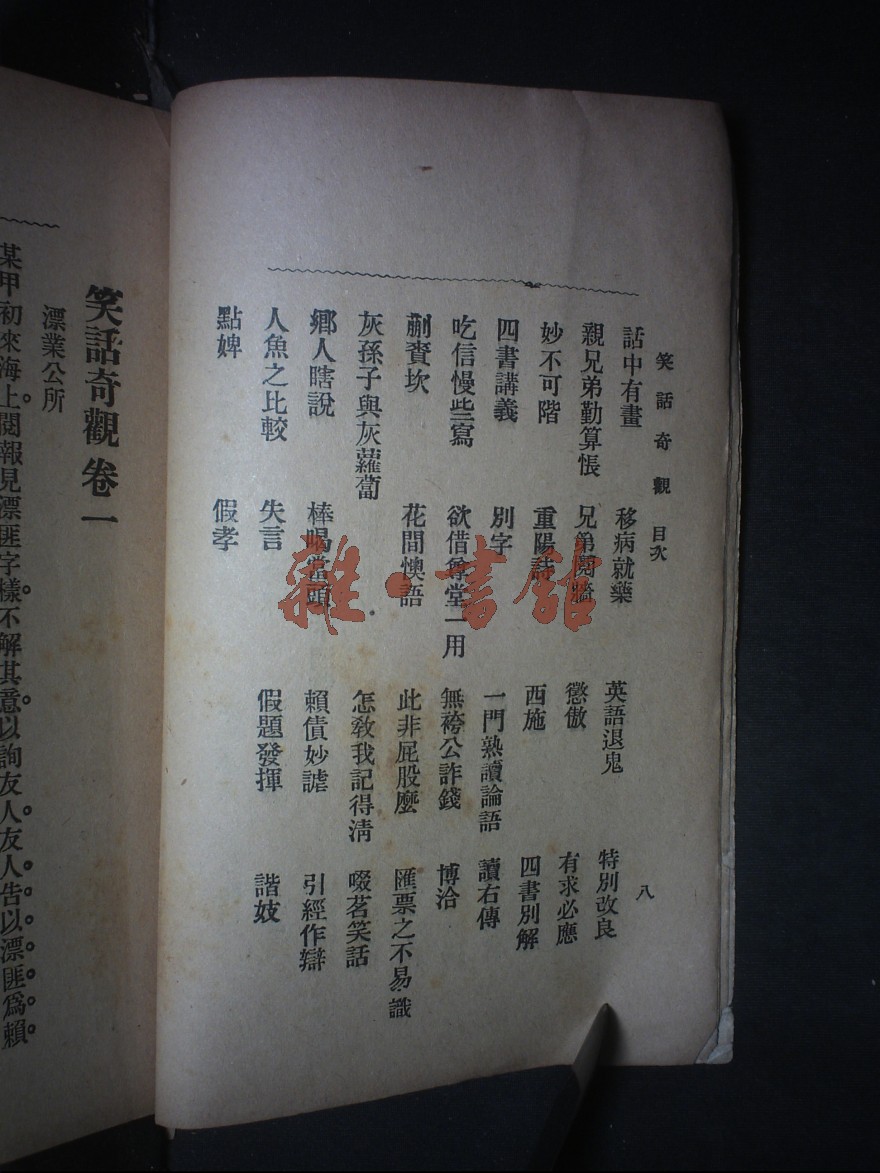 笑話奇觀 目次 八
話中有畫 移病就藥 英語退鬼 特別改良
親兄弟勤算帳 兄弟鬩牆 懲傲 有求必應
妙不可階 重陽誌 西施 四書別解
四書講義 別字 一門熟讀論語 讀右傳
吃信慢些寫 欲借尊堂一用 無袴公詐錢 博洽
蒯賚坎 花間懊語 此非屁股麼 匯票之不易識
灰孫子與灰蘿蔔 怎敎我記得淸 啜茗笑話
鄉人瞎說 棒喝當頭 賴債妙謔 引經作辯
人魚之比較 失言 假題發揮 諧妓
點婢 假孝
笑話奇觀卷一
漂業公所
某甲初來海上。閱報見漂匪字樣。不解其意。以詢友人。友人告以漂匪爲賴
雜·書館